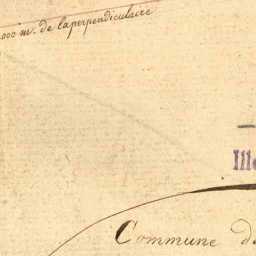 000 m. de la perpendiculaire
Ille
Commune de